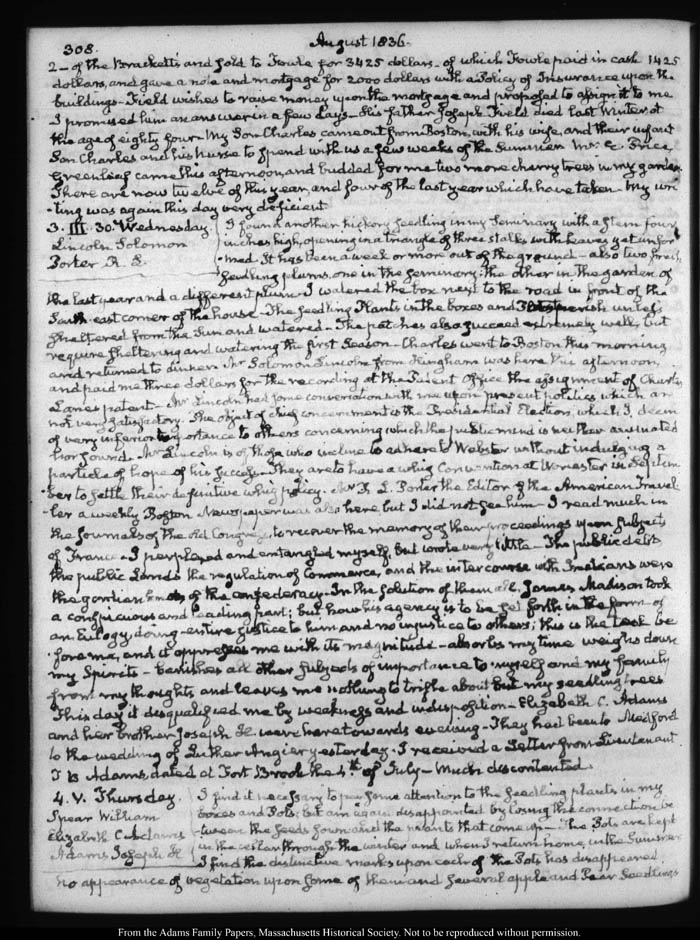 308.
August 1836.
2 - of the Bracketts and sold to Fowle for 3425 dollars - of which Fowle paid in cash 1425
dollars, and gave a note and mortgage for 2000 dollars with a Policy of Insurance upon the
buildings - Field wishes to raise money upon the mortgage and proposed to assign it to me
I promised him an answer in a few days - His father Joseph Field died last Winter at
the age of eighty four - My Son Charles came out from Boston, with his wife, and their infant
Son Charles and his Nurse to spend with us a few weeks of the Summer Mr. E. Price
Greenleaf came this afternoon, and budded for me two more cherry trees in my garden.
There are now twelve of this year, and four of the last year which have taken - My wri
-ting was again this day very deficient
3. III. 30. Wednesday.
Lincoln Solomon
Porter R. L.
I found another hickory seedling in my Seminary with a stem four
inches high, opening in a triangle of three stalks with leaves yet unfor
-med. It has been a week or more out of the ground - also two fresh
seedling plums, one in the seminary, the other in the garden of
the last year and a different plum - I watered the box next to the road in front of the
South-east corner of the house - The seedling Plants in the boxes and Pots perish unless
sheltered from the Sun and watered - The pot has also succeed extremely well, but
require sheltering and watering the first Season - Charles went to Boston this morning
and returned to dinner. Mr Solomon Lincoln from Hingham was here this afternoon,
and paid me three dollars for the recording at the Patent Office the assignment of Charles
Lane's patent - Mr Lincoln had some conversation with me upon present politics which are
not very satisfactory. The object of chief concernment is the Presidential Election, which I deem
of very inferior importance to others concerning which the public mind is neither animated
nor sound. Mr Lincoln is of those who incline to adhere to Webster without indulging a
particle of hope of his success. They are to have a whig Convention at Worcester in Septem
-ber to settle their definitive whig policy. Mr R. L. Porter the Editor of the American Travel
-ler a weekly Boston Newspaper was also here but I did not see him - I read much in
the Journals of the Old Congress, to recover the memory of their proceedings upon subjects
of France - I perplexed and entangled myself, but wrote very little - The public debt,
the public Lands the regulation of Commerce, and the intercourse with Indians were
the gordian knots of the confederacy - In the solution of them all, James Madison took
a conspicuous and leading part; but how his agency is to be set forth in the form of
an Eulogy, doing entire justice to him and no injustice to others; this is the task be
-fore me, and it oppresses me with its magnitude - absorbs my time weighs down
my Spirits - banishes all other subjects of importance to myself and my family
from my thoughts and leaves me nothing to trifle about but my seedling trees
This day it disqualified me by weakness and indisposition - Elizabeth C. Adams
and her brother Joseph H. were here towards evening - They had been to Medford
to the wedding of Luther Angier yesterday - I received a Letter from Lieutenant
T B Adams, dated at Fort Brook the 4th of July - Much discontented
4. V. Thursday.
Spear William
Elizabeth C. Adams
Adams Joseph H
I find it necessary to pay some attention to the seedling plants in my
boxes and Pots; but am again disappointed by losing the connection be
-tween the seeds sown and the plants that come up - The Pots are kept
in the cellar through the winter and when I return home, in the Summer
I find the distinctive marks upon each of the Pots has disappeared
no appearance of vegetation upon some of them and several apple and Pear Seedlings
From the Adams Family Papers, Massachusetts Historical Society. Not to be reproduced without permission.